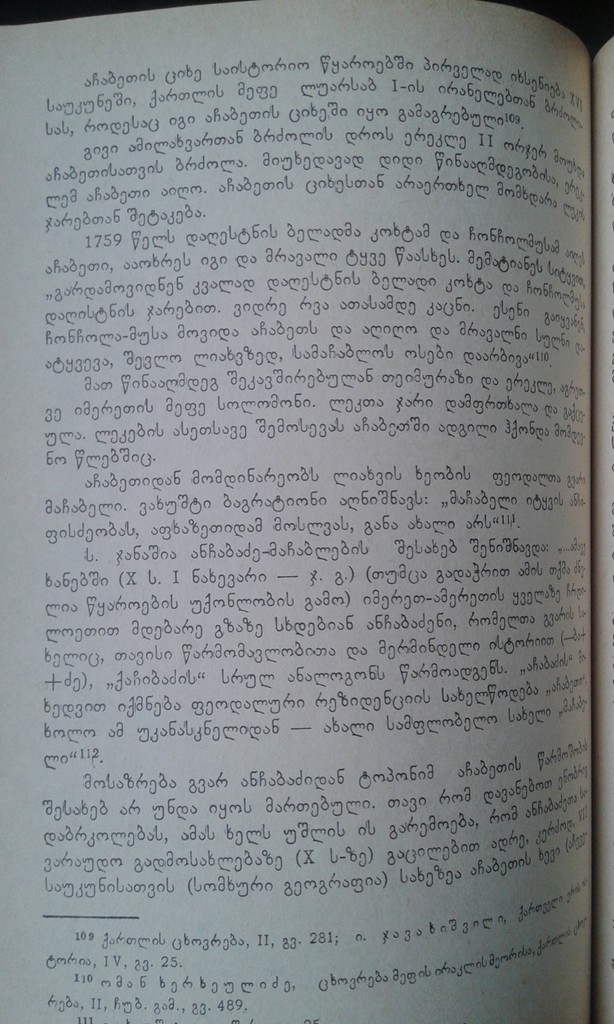 აჩაბეთის ციხე საისტორიო წყაროებში პირველად იხსენიება XVI
საუკუნეში, ქართლის მეფე ლუარსაბ I-ის ირანელებთან ბრძოლი-
სას, როდესაც იგი აჩაბეთის ციხეში იყო გამაგრებული¹⁰⁹.
გივი ამილახვართან ბრძოლის დროს ერეკლე II ორჯერ მოუხდა
აჩაბეთისათვის ბრძოლა. მიუხედავად დიდი წინააღმდეგობისა, ერეკ-
ლემ აჩაბეთი აიღო. აჩაბეთის ციხესთან არაერთხელ მომხდარა ლეკის
ჯარებთან შეტაკება.
1759 წელს დაღესტნის ბელადმა კოხტამ და ჩონჩოლმუსამ აიღეს
აჩაბეთი, ააოხრეს იგი და მრავალი ტყვე წაასხეს. მემატიანეს სიტყვით,
„გარდამოვიდნენ კვალად დაღესტნის ბელადი კოხტა და ჩონჩოლმუსა
დაღისტნის ჯარებით. ვიდრე რვა ათასამდე კაცნი. ესენი გაიყვანეს
ჩონჩოლა-მუსა მოვიდა აჩაბეთს და აღიღო და მრავალნი სულნი და-
ატყვევა, შევლო ლიახვზედ, სამაჩაბლოს ოსები დაარბივა“¹¹⁰.
მათ წინააღმდეგ შეკავშირებულან თეიმურაზი და ერეკლე, აგრეთ-
ვე იმერეთის მეფე სოლომონი. ლეკთა ჯარი დამფრთხალა და გაქცე-
ულა. ლეკების ასეთსავე შემოსევას აჩაბეთში ადგილი ჰქონდა მომდევ-
ნო წლებშიც.
აჩაბეთიდან მომდინარეობს ლიახვის ხეობის ფეოდალთა გვარი
მაჩაბელი. ვახუშტი ბაგრატიონი აღნიშნავს: „მაჩაბელი იტყვის ანჩ-
ფისძეობას, აფხაზეთიდამ მოსლვას, განა ახალი არს“¹¹¹.
ს. ჯანაშია ანჩაბაძე-მაჩაბლების შესახებ შენიშნავდა: „...ამავე
ხანებში (X ს. I ნახევარი — ჯ. გ.) (თუმცა გადაჭრით ამის თქმა ძნე-
ლია წყაროების უქონლობის გამო) იმერეთ-ამერეთის ყველაზე ჩრდი-
ლოეთით მდებარე გზაზე სხდებიან ანჩაბაძენი, რომელთა გვარის სა-
ხელიც, თავისი წარმომავლობითა და მერმინდელი ისტორიით (—ბა+
+ძე), „ქაჩიბაძის“ სრულ ანალოგონს წარმოადგენს. „აჩაბაძის“ მი-
ხედვით იქმნება ფეოდალური რეზიდენციის სახელწოდება „აჩაბეთი“,
ხოლო ამ უკანასკნელიდან — ახალი სამფლობელო სახელი „მაჩაბე-
ლი“¹¹².
მოსაზრება გვარ ანჩაბაძიდან ტოპონიმ აჩაბეთის წარმოშობის
შესახებ არ უნდა იყოს მართებული. თავი რომ დავანებოთ ენობრივ
დაბრკოლებას, ამას ხელს უშლის ის გარემოება, რომ ანჩაბაძეთა სა-
ვარაუდო გადმოსახლებაზე (X ს-ზე) გაცილებით ადრე, კერძოდ, VII
საუკუნისათვის (სომხური გეოგრაფია) სახეზეა აჩაბეთის ხევი
¹⁰⁹ ქართლის ცხოვრება, II, გვ. 281; ი. ჯავახიშვილი, ქართველი ერის ის-
ტორია, IV, გვ. 25.
¹¹⁰ ომან ხერხეულიძე, ცხოვრება მეფის ირაკლის მეორისა, ქართლის ცხოვ-
რება, II, ჩუბ. გამ., გვ. 489.